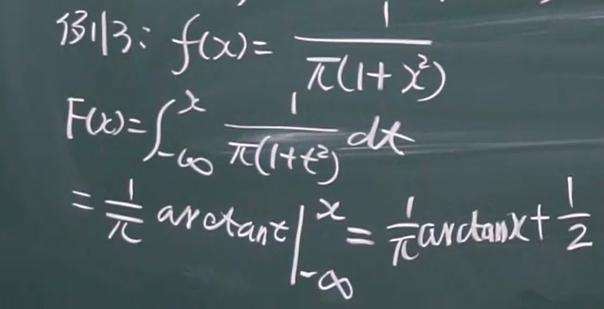 例3: f(x)= 1/π(1+x²)
F(x)=∫_{-∞}^{x} 1/π(1+t²) dt
= 1/π arctant|_{-∞}^{x} = 1/π arctanx + 1/2